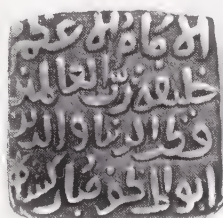 الامام الاعظم
خليفة رب العالمين
الدنيا والدين
ابو المظفر مباركشاه